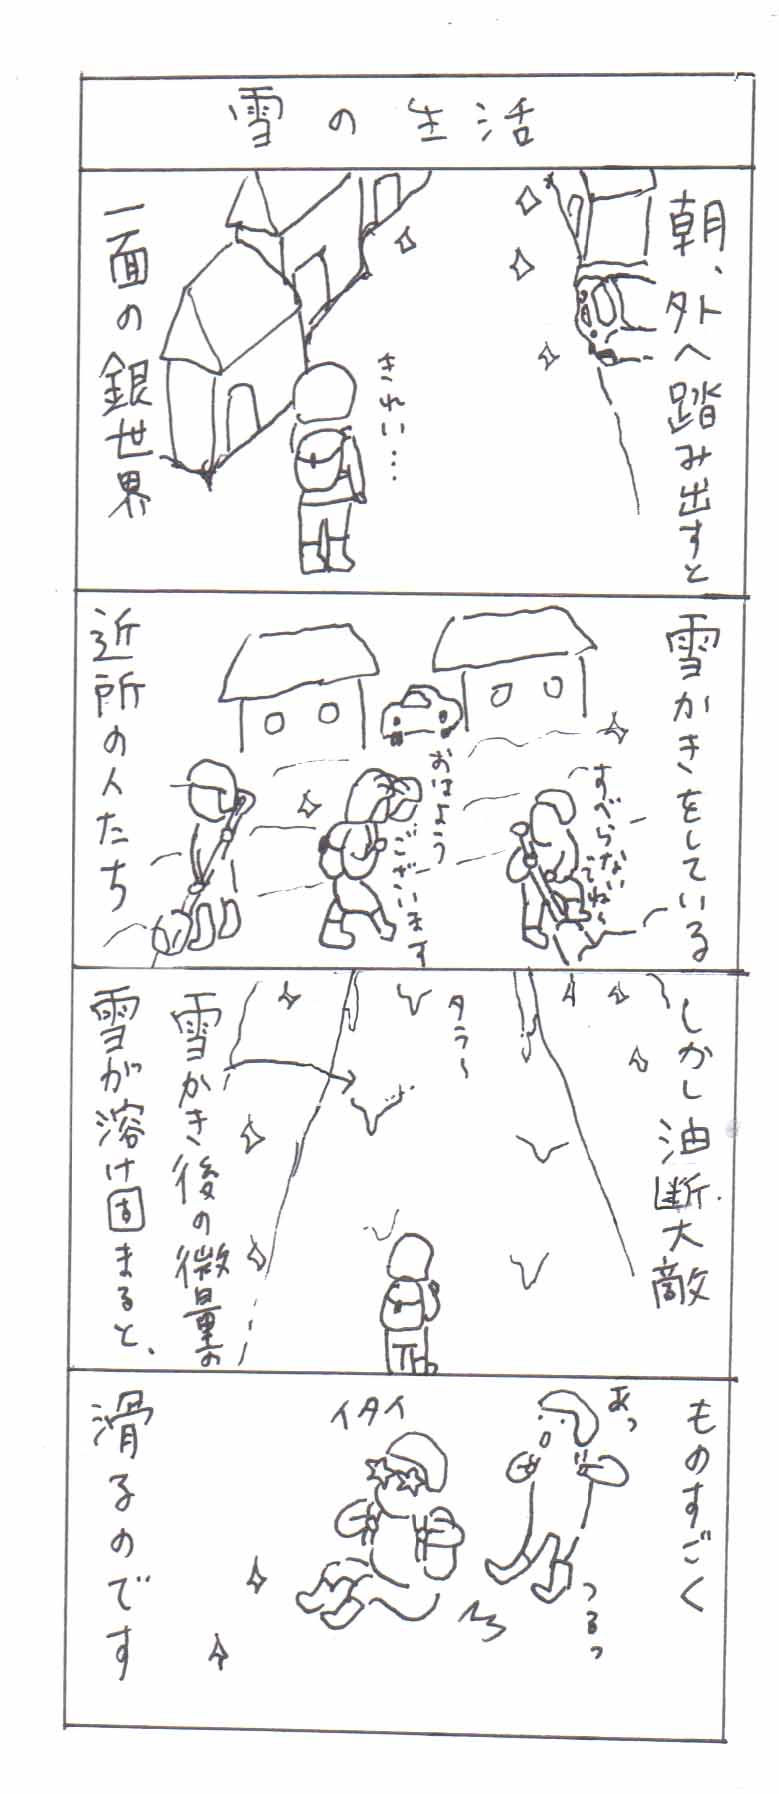 雪の生活
朝、外へ踏み出すと
きれい…
一面の銀世界
雪かきをしている
すべらない
でね〜
おはよう
ございます
近所の人たち
しかし油断大敵
タラ〜
雪かき後の微量の
雪が溶け固まると、
ものすごく
あっ
つるっ
イタイ
滑るのです